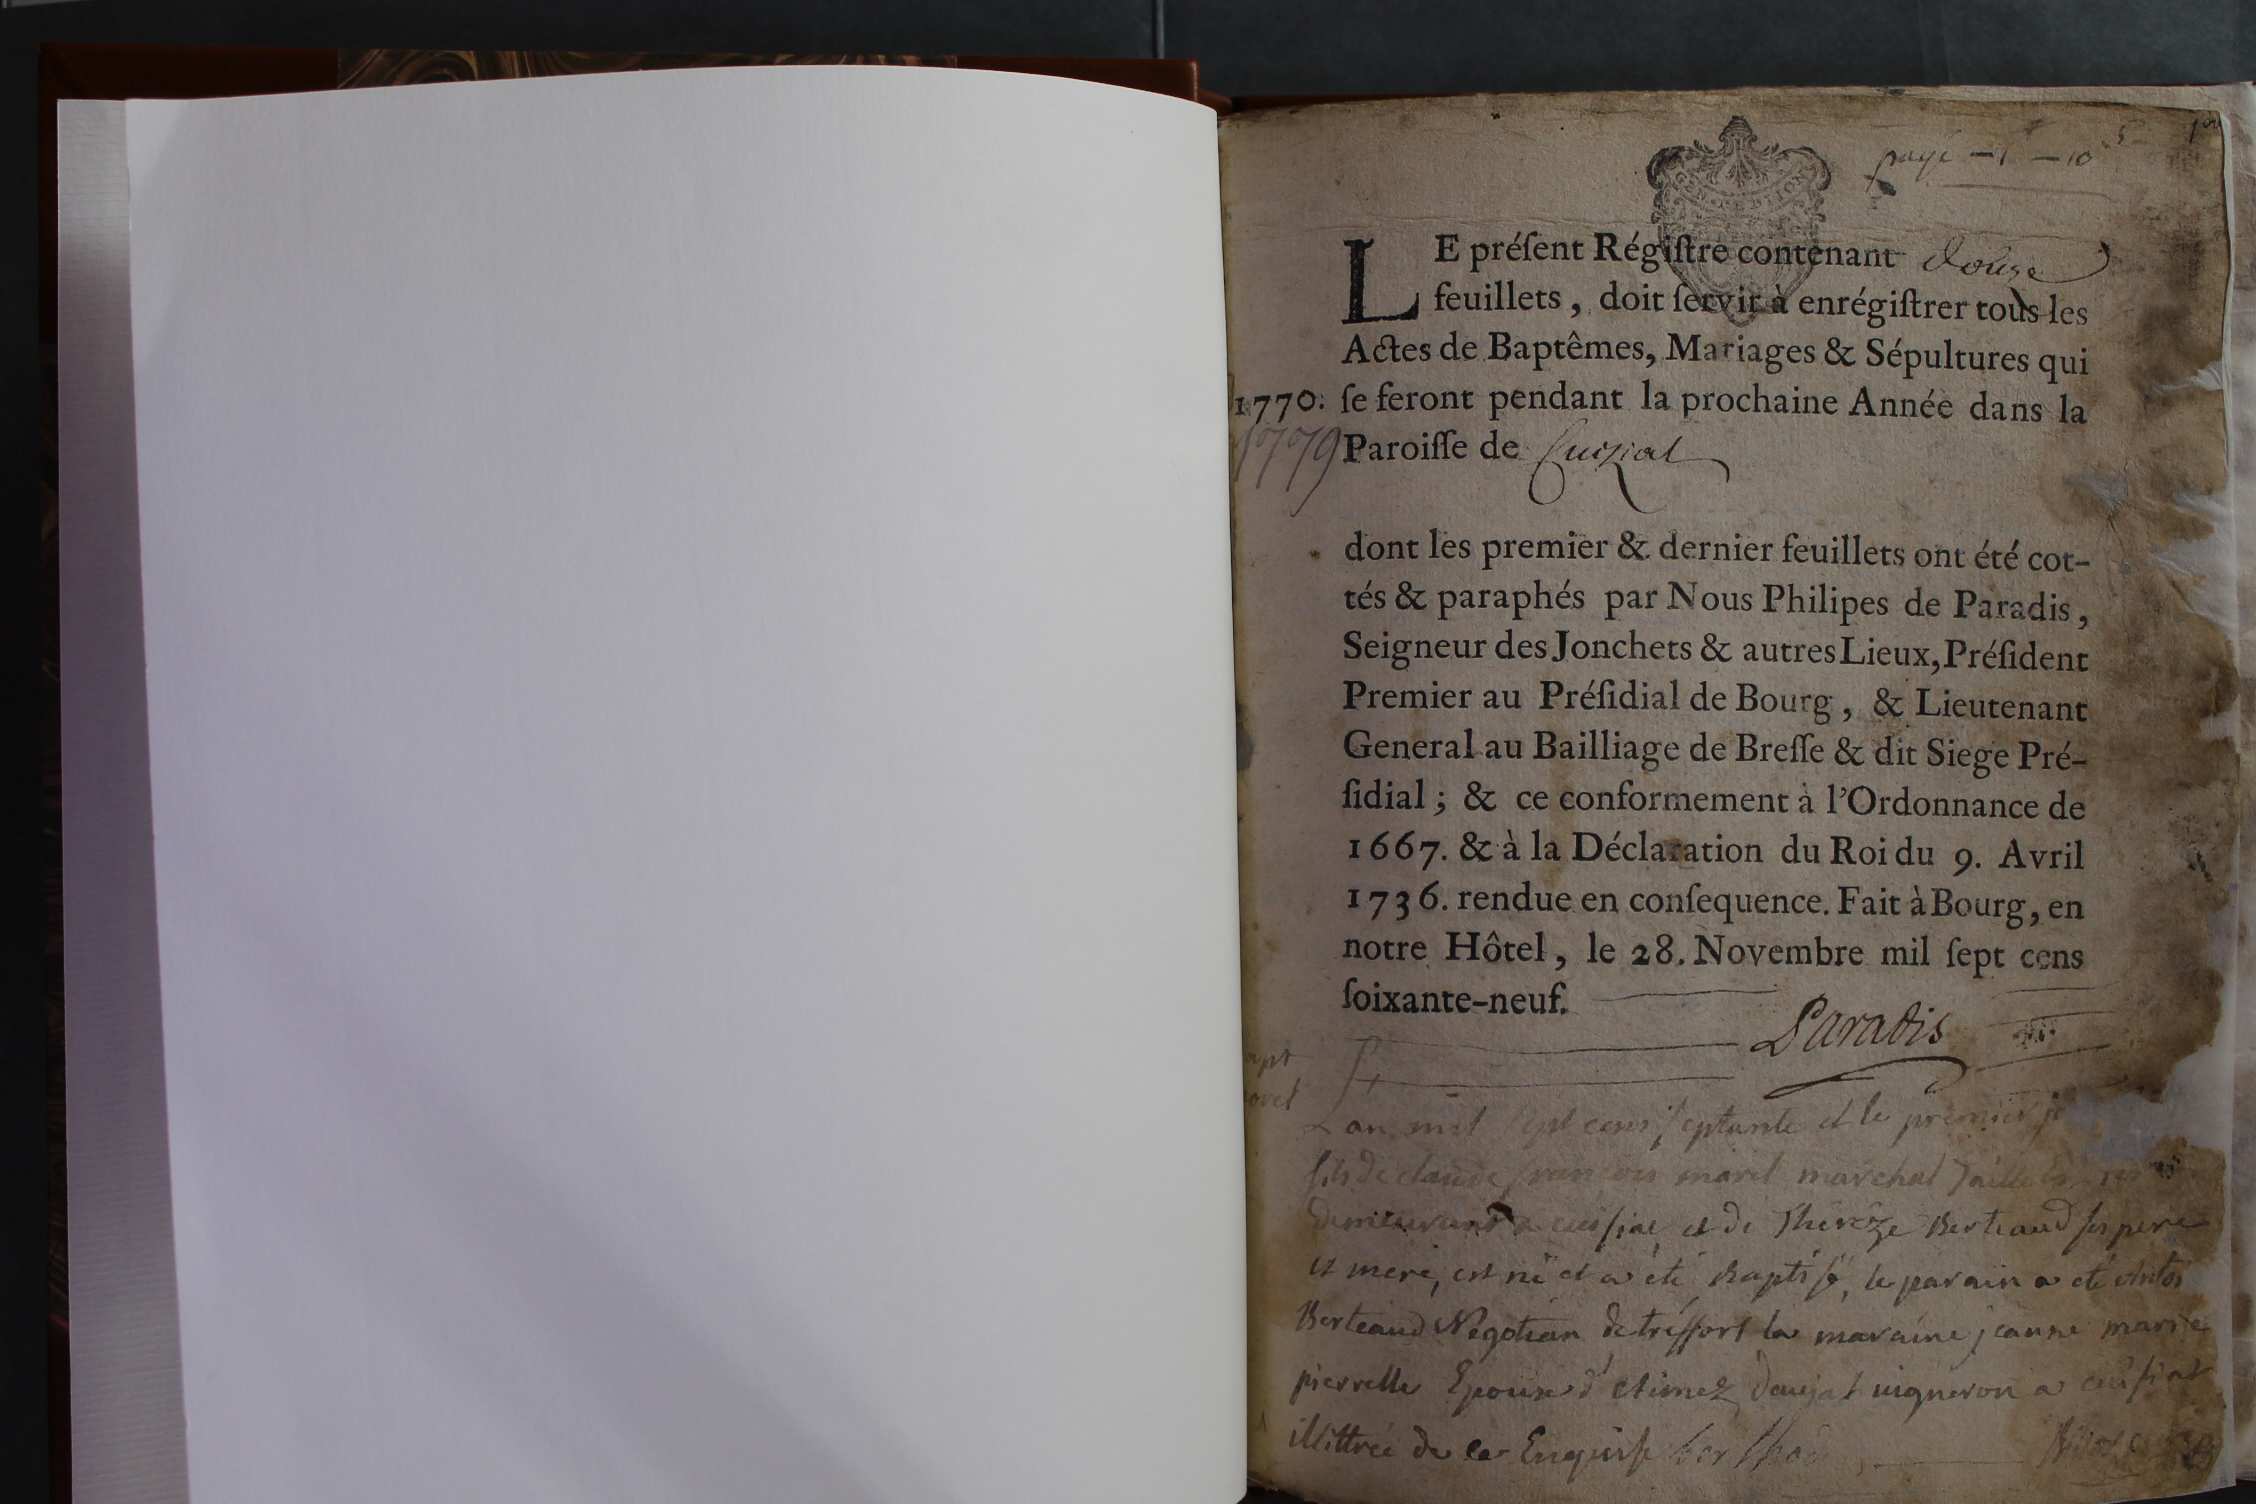 page - 1 - 10
GEN
LE préſent Régiſtre contenant douze
feuillets, doit ſervir à enrégiſtrer tous les
Actes de Baptêmes, Mariages & Sépultures qui
1770. ſe feront pendant la prochaine Année dans la
1779
Paroiſſe de Cuiziat
dont les premier & dernier feuillets ont été cot-
tés & paraphés par Nous Philipes de Paradis,
Seigneur des Jonchets & autres Lieux, Préſident
Premier au Préſidial de Bourg, & Lieutenant
General au Bailliage de Breſſe & dit Siege Pré-
ſidial; & ce conformement à l'Ordonnance de
1667. & à la Déclaration du Roi du 9. Avril
1736. rendue en conſequence. Fait à Bourg, en
notre Hôtel, le 28. Novembre mil ſept cens
ſoixante-neuf.
Paradis
Lan mil sept cens septante et le premier
fils de claude françois marechal
demeurant a cuisiat et de Thérèze Berteaud ses pere
et mere, est né et a été Baptisé, le parain a eté
Berteaud Negotian de tréffort la maraine jeanne marie
pierrelle Epouse d' vigneron a cuisiat
illittrée de ce Enquise